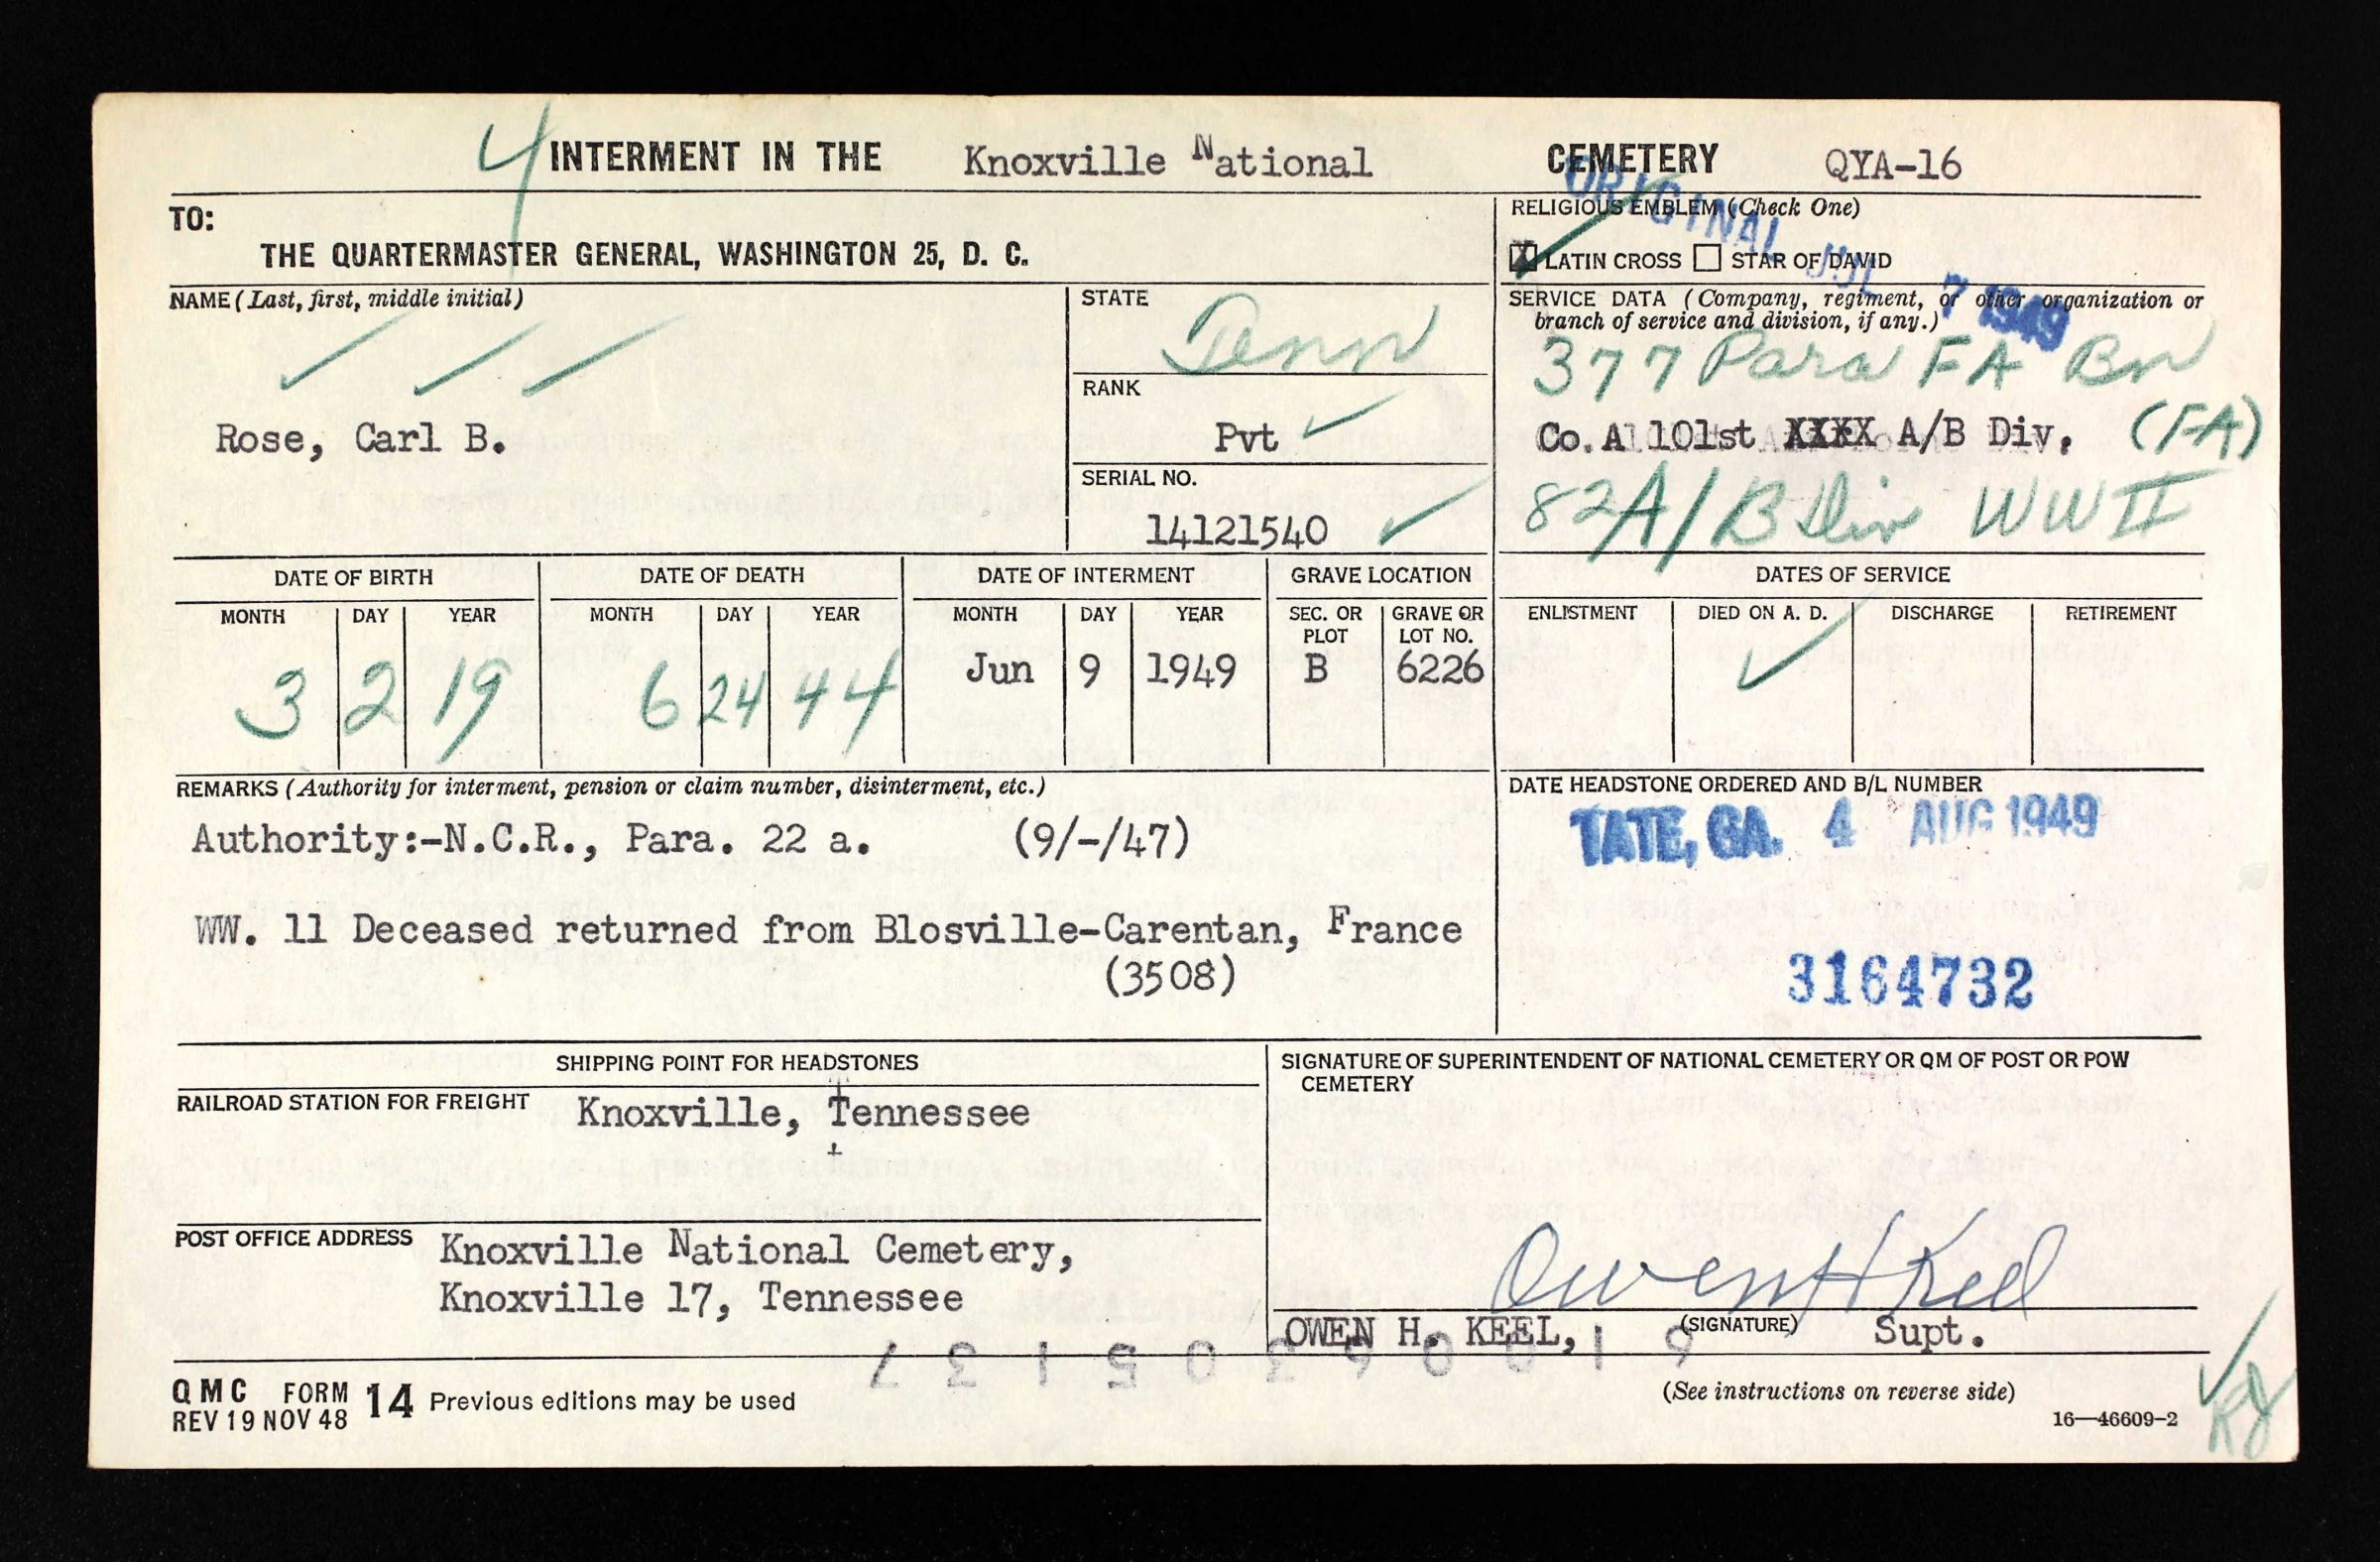 4 INTERMENT IN THE Knoxville National CEMETERY QYA-16
ORIGINAL JUL 7 1949
TO:
THE QUARTERMASTER GENERAL, WASHINGTON 25, D. C.
RELIGIOUS EMBLEM (Check One)
X LATIN CROSS STAR OF DAVID
NAME (Last, first, middle initial)
Rose, Carl B.
STATE
Tenn
RANK
Pvt
SERIAL NO.
14121540
SERVICE DATA (Company, regiment, or other organization or
branch of service and division, if any.)
377 Para FA Bn
Co. A 101st XXXX A/B Div. (FA)
82 A/B Div WW II
DATE OF BIRTH DATE OF DEATH DATE OF INTERMENT GRAVE LOCATION DATES OF SERVICE
MONTH DAY YEAR MONTH DAY YEAR MONTH DAY YEAR SEC. OR PLOT GRAVE OR LOT NO. ENLISTMENT DIED ON A. D. DISCHARGE RETIREMENT
3 2 19 6 24 44 Jun 9 1949 B 6226
REMARKS (Authority for interment, pension or claim number, disinterment, etc.)
Authority:-N.C.R., Para. 22 a. (9/-/47)
WW. 11 Deceased returned from Blosville-Carentan, France
(3508)
DATE HEADSTONE ORDERED AND B/L NUMBER
TATE, GA. 4 AUG 1949
3164732
SHIPPING POINT FOR HEADSTONES
RAILROAD STATION FOR FREIGHT Knoxville, Tennessee
POST OFFICE ADDRESS Knoxville National Cemetery,
Knoxville 17, Tennessee
SIGNATURE OF SUPERINTENDENT OF NATIONAL CEMETERY OR QM OF POST OR POW
CEMETERY
Owen H Keel
OWEN H. KEEL, (SIGNATURE) Supt.
QMC FORM 14 Previous editions may be used
REV 19 NOV 48
(See instructions on reverse side)
16—46609-2